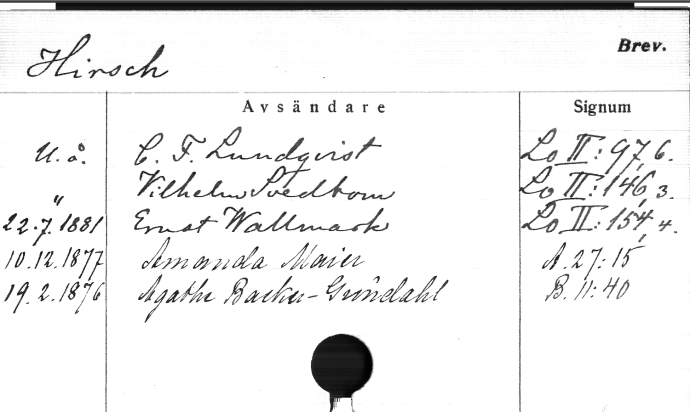 Brev.
Hirsch
Avsändare Signum
U. å. C. F. Lundqvist Lo III: 97, 6.
" Vilhelm Svedbom Lo III: 146, 3.
22.7.1881 Ernst Wallmark Lo III: 154, 4.
10.12.1877 Amanda Maier A. 27: 15
19.2.1876 Agathe Backer-Gröndahl B. 11: 40